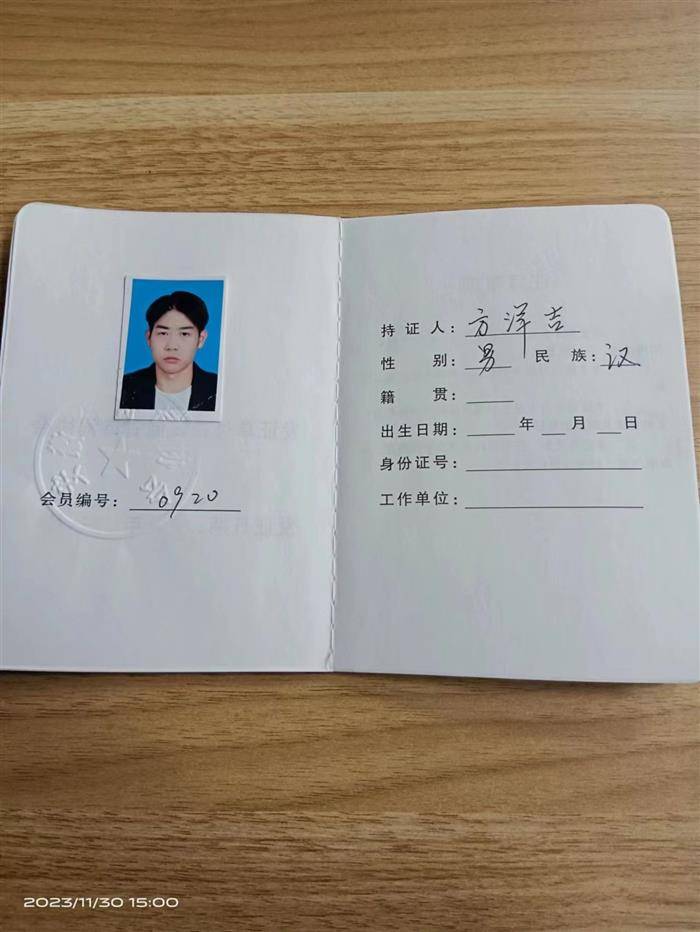 会员编号: 0920
持 证 人: 方洋吉
性 别: 男 民 族: 汉
籍 贯:
出生日期: 年 月 日
身份证号:
工作单位:
2023/11/30 15:00